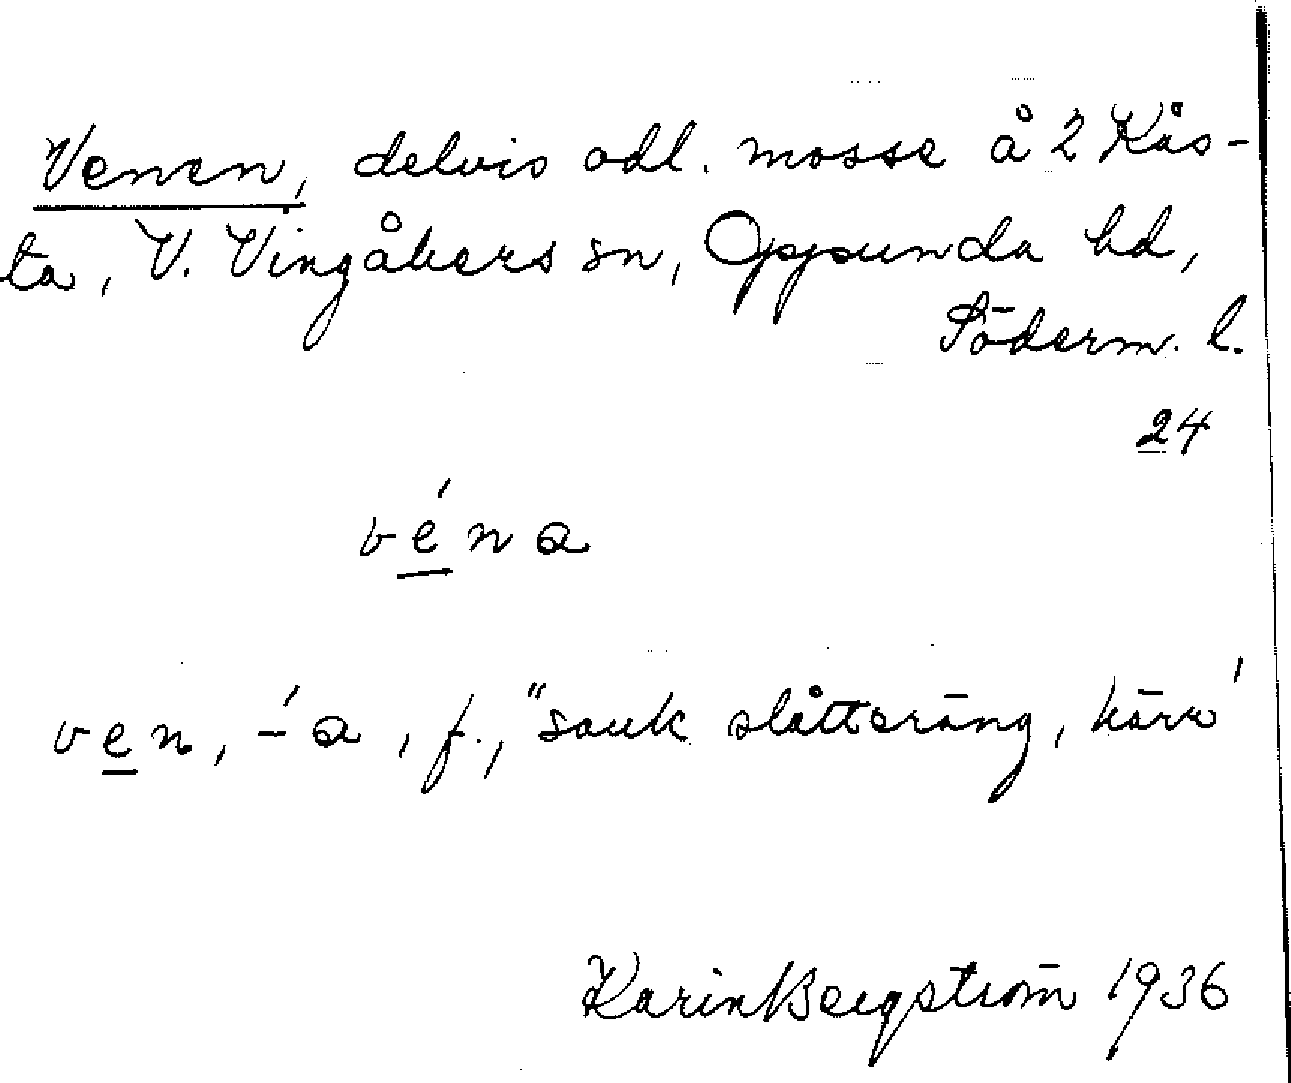 Venen, delvis odl. mosse å 2 Kås-
ta, V. Vingåkers sn, Oppunda hd,
Söderm. l.
24
véna
ven, -́a, f., "sank slåtteräng, kärr'
Karin Bergström 1936